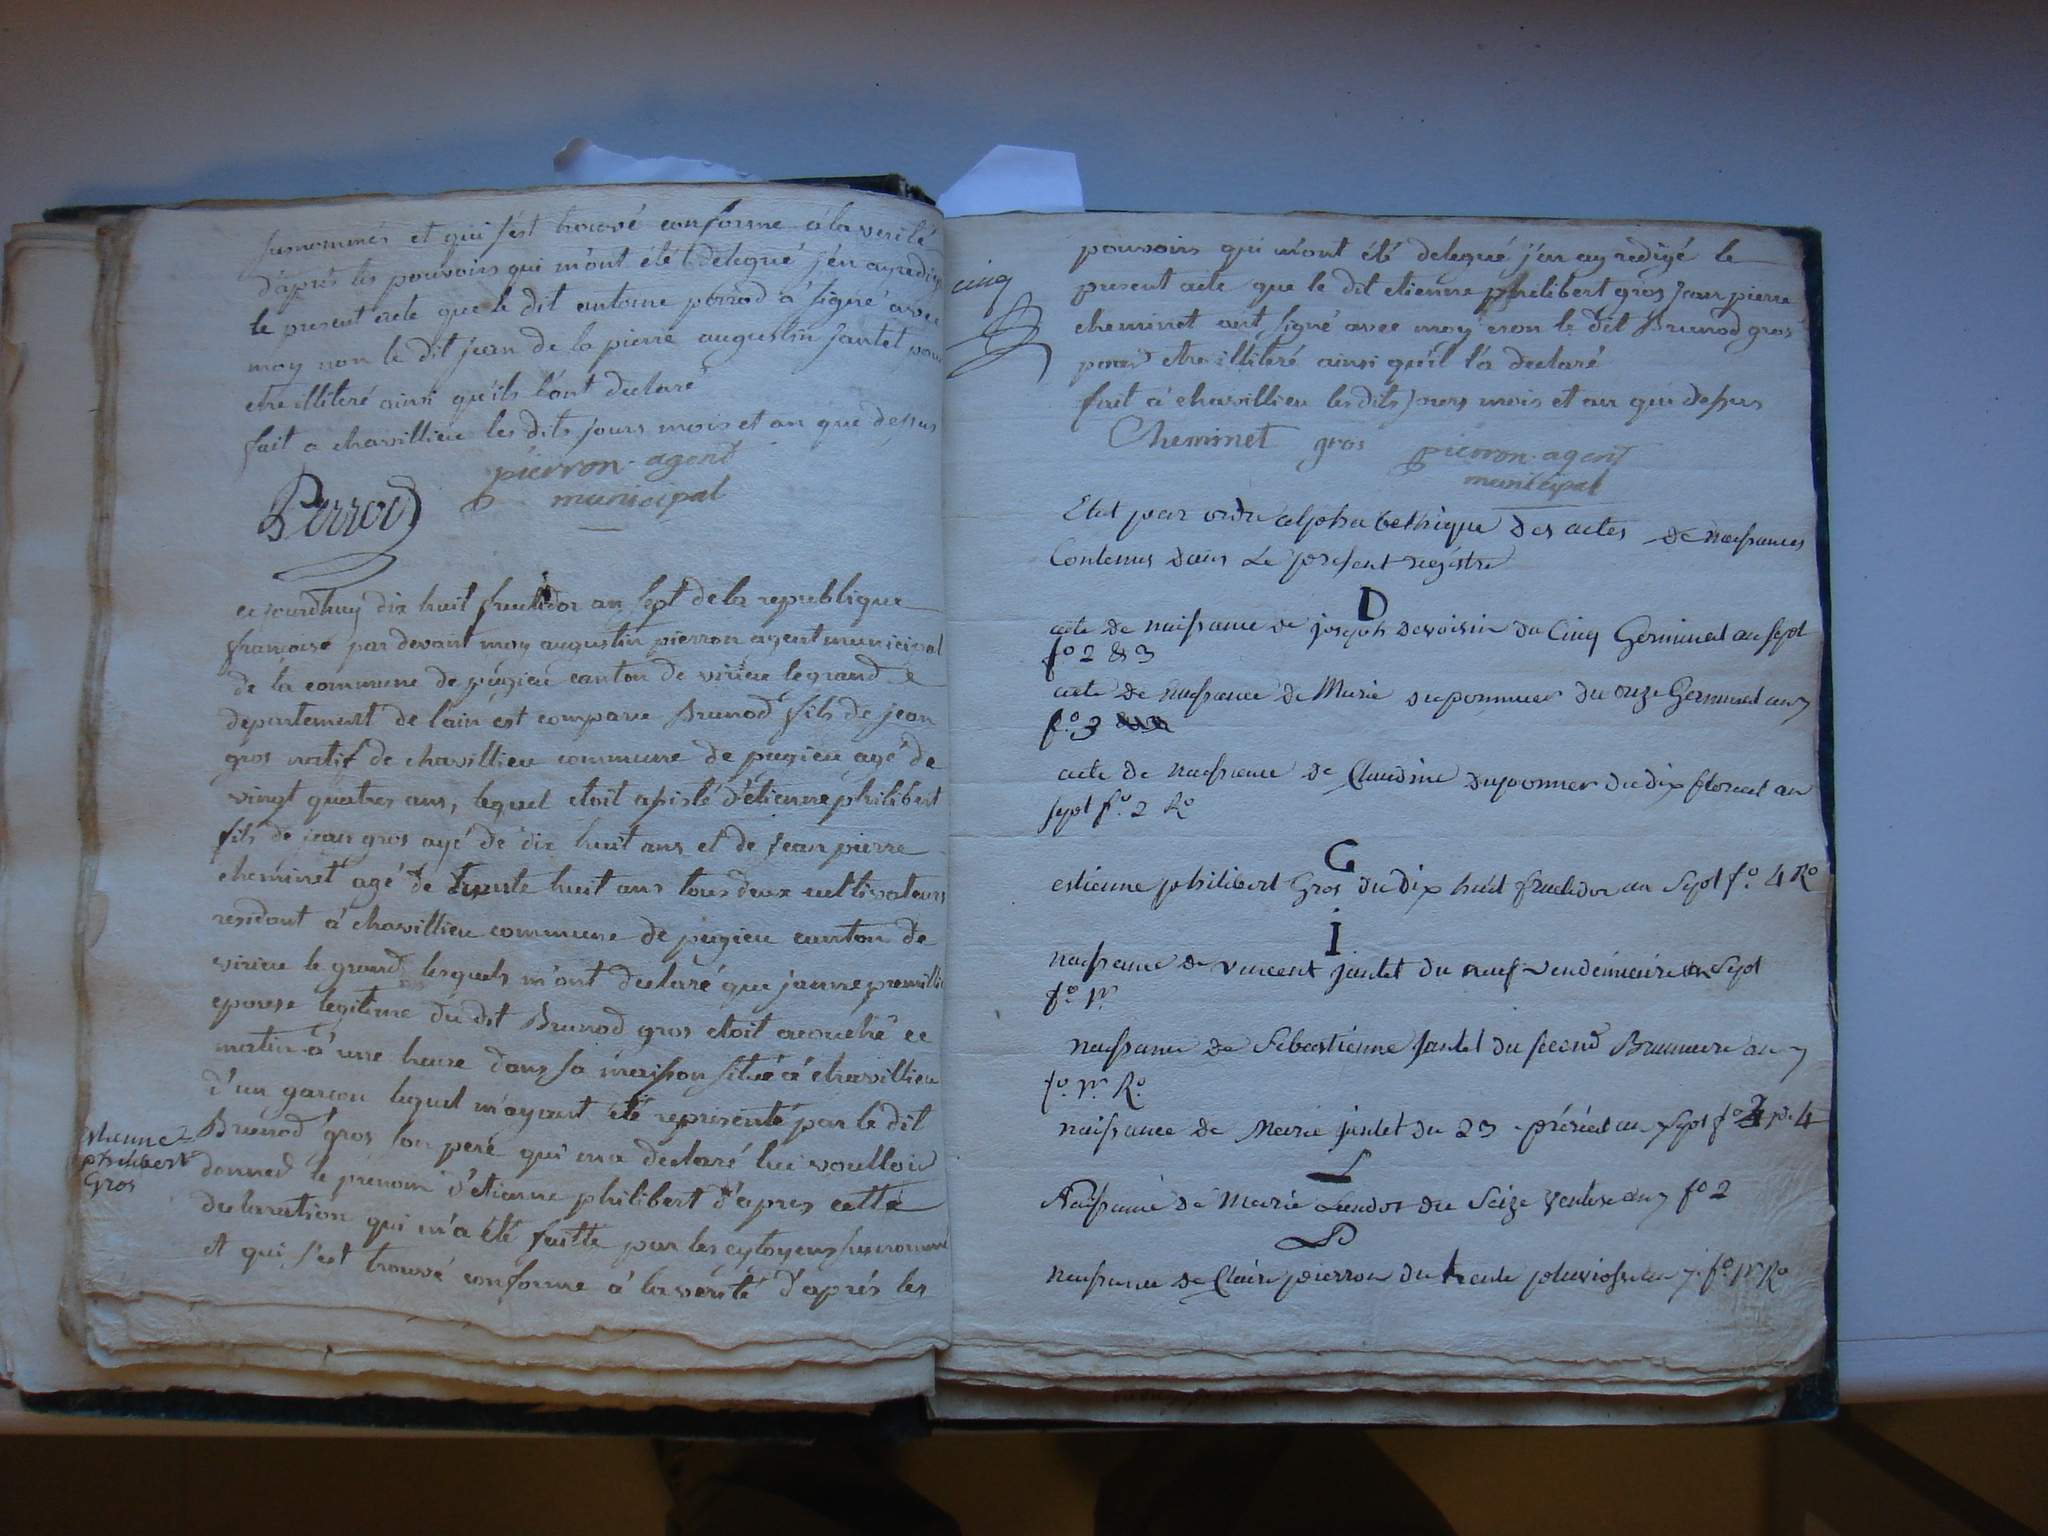 susnommés et qui s'est trouvé conforme à la verité
d'après les pouvoirs qui m'ont été delegué j'en ay redigé
le present acte que le dit antoine perrod a signé avec
moy non le dit jean de la pierre augustin jantet pour
etre illiteré ainsi qu'ils l'ont declaré
fait a chavillieu les dits jours mois et an que dessus
Perrod
pierron agent
municipal
ce jourdhuy dix huit fructidor an sept de la republique
francoise par devant moy augustin pierron agent municipal
de la commune de pugieu canton de virieu le grand
departement de l'ain est comparu Brunod fils de jean
gros natif de chavillieu commune de pugieu agé de
vingt quatres ans, lequel etoit assisté d'etienne philibert
fils de jean gros agé de dix huit ans et de jean pierre
cheminet agé de trente huit ans tous deux cultivateurs
residant à chavillieu commune de pugieu canton de
virieu le grand lesquels m'ont declaré que janne
epouse legitime du dit Brunod gros etoit acouché ce
matin à une heure dans sa maison située à chavillieu
d'un garcon lequel m'ayant été representé par le dit
Brunod gros son pere qui m'a declaré lui voulloir
donned le prenom d'etienne philibert d'apres cette
declaration qui m'a été faitte par les cytoyens susnommé
et qui s'est trouvé conforme à la verité d'aprés les
etienne
philibert
Gros
cinq
pouvoirs qui m'ont été delegué j'en ay redigé le
present acte que le dit etienne philibert gros jean pierre
cheminet ont signé avec moy non le dit Brunod gros
pour etre illiteré ainsi qu'il l'a declaré
fait à chavillieu les dits jours mois et an que dessus
Cheminet gros pierron agent
municipal
Etat par ordre alphabethique des actes de naissances
Contenus dans Le present régistre
D
acte de naissance de joseph devoisin du Cinq Germinal an sept
fo 2 & 3
acte de naissance de Marie duponmier du onze Germinal an 7
fo. 3
acte de naissance de Claudine duponmier du dix floreal an
sept fo. 2 Ro
G
estienne philibert Gros du dix huit fructidor an Sept fo. 4 Ro
I
naissance de vincent jantet du neuf vendémiaire an Sept
fo. 1er
naissance de Sebastienne jantet du second Brumaire an 7
fo. 1er Ro.
naissance de Marie jantet du 23 prérial an Sept fo 3 & 4
L
Naissance de Marie du Seize ventose an 7 fo 2
P
naissance de Claire pierron du trente pluviose an 7 fo. 1er Ro